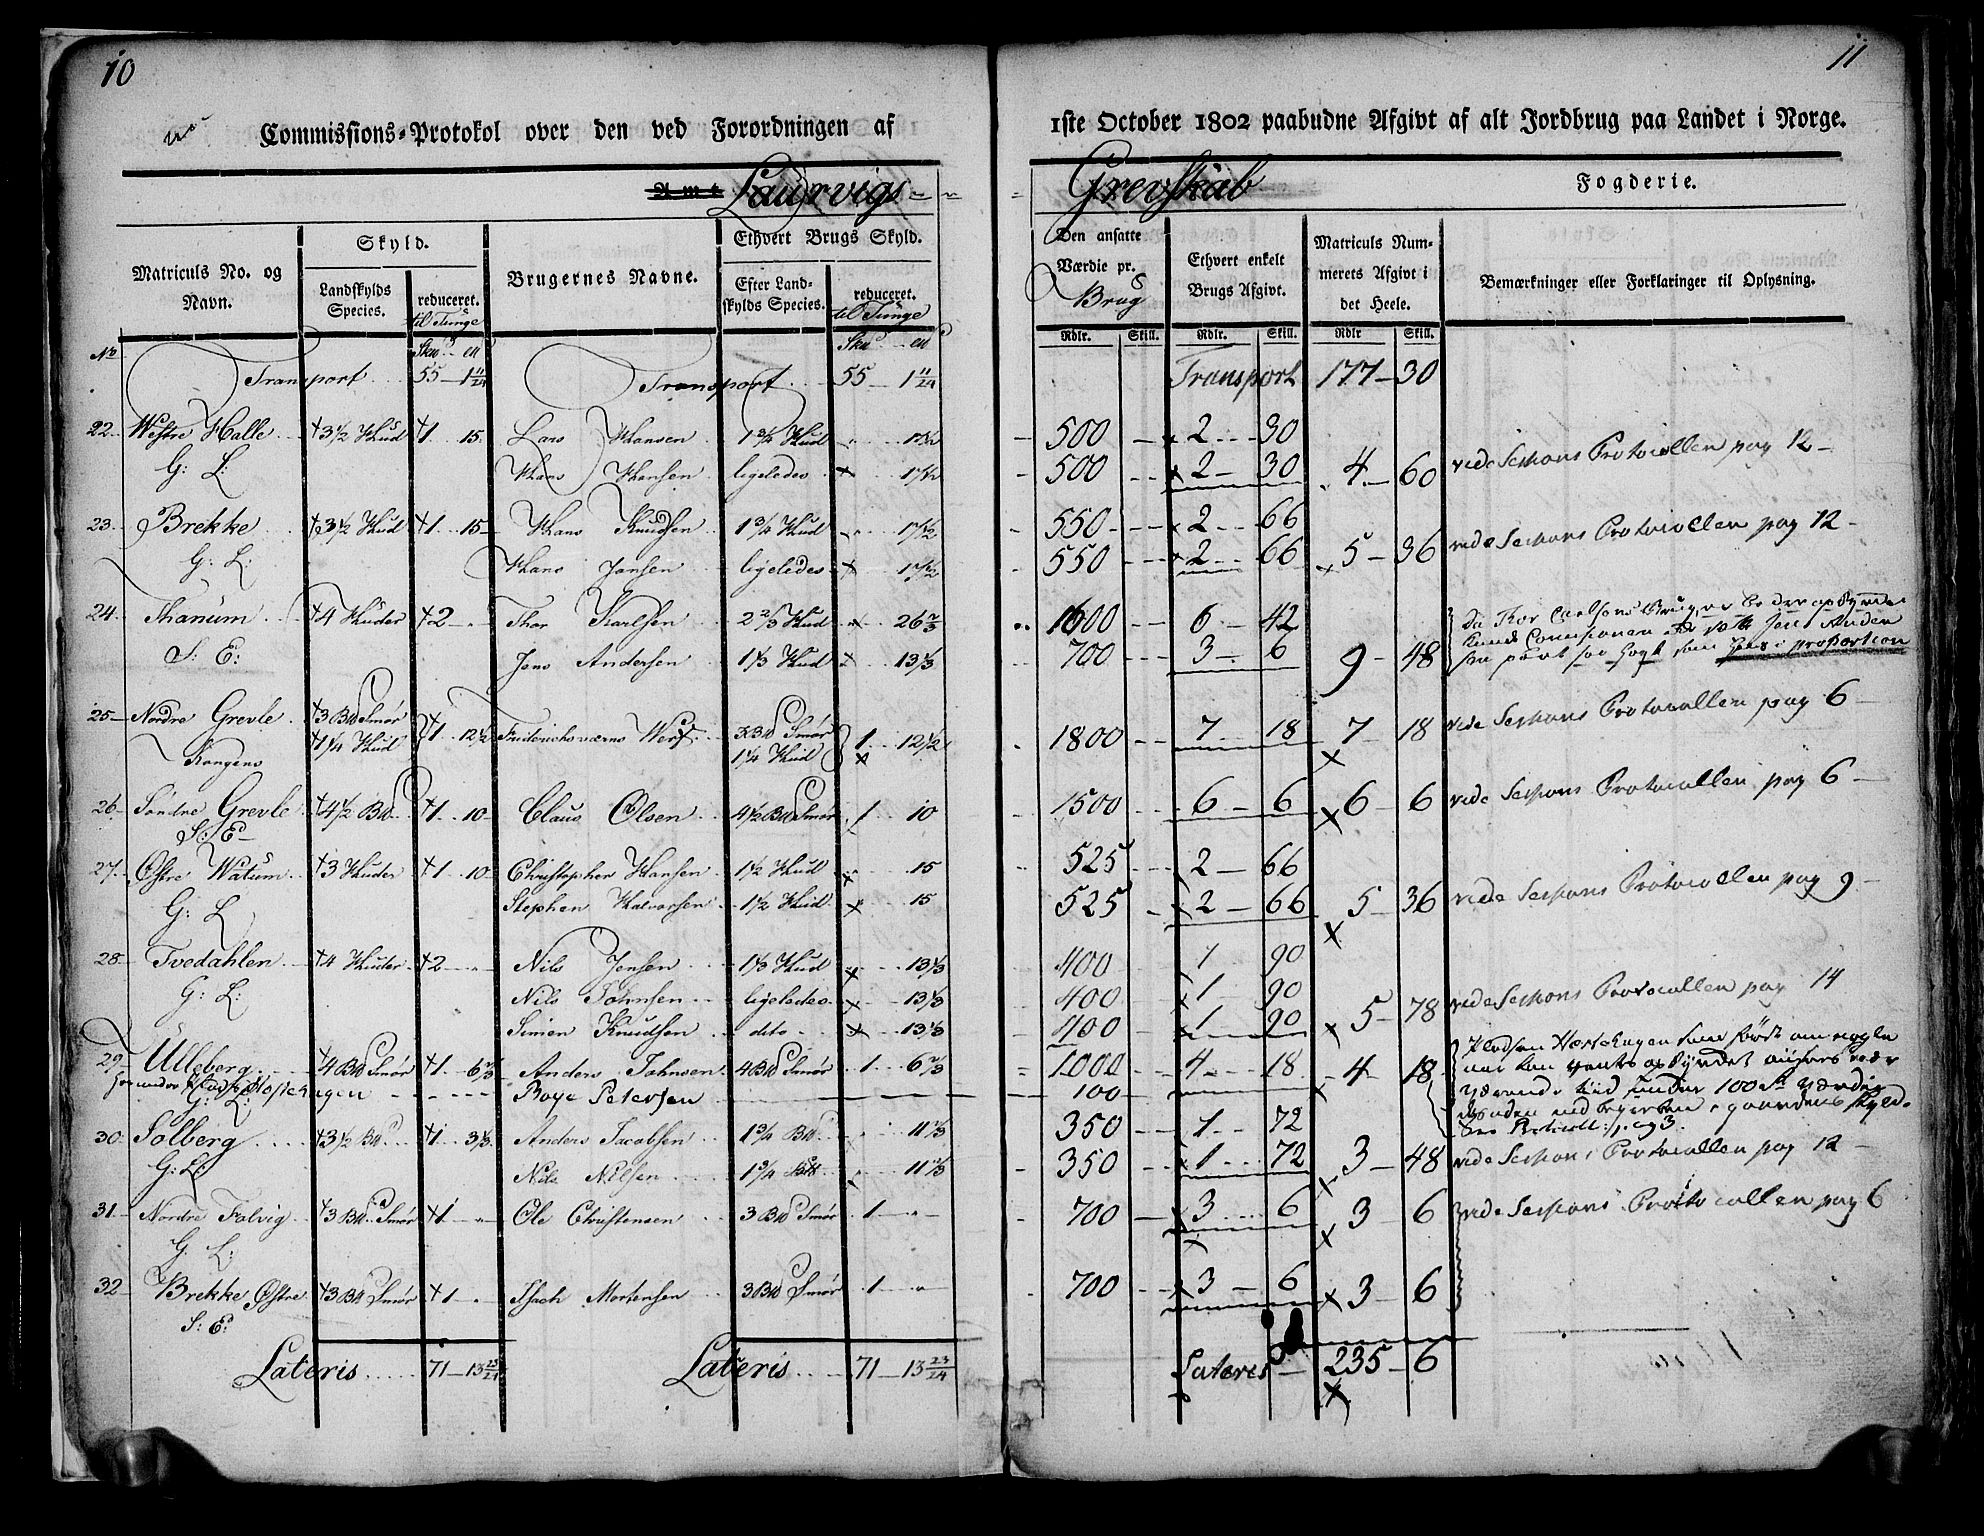 10
Commissions-Protokol over den ved Forordningen af
Amt Laurvigs
Matriculs No. og Navn.
Skyld.
Landskylds Species.
reduceret. til Tunge
Brugernes Navne.
Ethvert Brugs Skyld.
Efter Landskylds Species.
reduceret. til Tunge
No
Transport 55 - 1 11/24 Transport 55 - 1 11/24
22. Westre Halle †3 1/2 Hud †1 15. Lars Hansen 1 3/4 Hud 17 1/2
G: L: Hans Hansen ligeledes 17 1/2
23. Brekke †3 1/2 Hud †1 15 Hans Knudsen 1 3/4 Hud 17 1/2
G: L: Hans Jansen ligeledes 17 1/2
24. Thanum †4 Huder †2 - Thor Karlsen 2 2/3 Hud 26 2/3
S: E: Jens Andersen 1 1/3 Hud 13 1/3
25 Nordre Grevle †3 Bd Smør †1 1/4 Hud †1 12 1/2 Friderichsværns Werft 3 Bd Smør 1 1/4 Hud 1 12 1/2
Kongens
26. Søndre Grevle †4 1/2 Bd †1 10 Claus Olsen 4 1/2 Bd Smør 1 10
S: E
27. Østre Watum †3 Huder †1 10 Christopher Hansen 1 1/2 Hud 15
G: L Stephen Halvorsen 1 1/2 Hud 15
28 Tvedahlen †4 Huder †2 Nils Jensen 1 1/3 Hud 13 1/3
G: L: Nils Johnsen ligeledes 13 1/3
Simen Knudsen dito 13 1/3
29 Ulleberg †4 Bd Smør †1 6 2/3 Anders Johnsen 4 Bd Smør 1 6 2/3
G: L: Boye Petersen
30 Solberg †3 1/2 Bd †1 3 1/3 Anders Jacobsen 1 3/4 Bd 11 2/3
G: L Nils Nilsen 1 3/4 Bd 11 2/3
31 Nordre Falvig †3 Bd Smør †1 - Ole Christensen 3 Bd Smør 1 -
G. L:
32 Brekke Østre †3 Bd Smør †1 - Isach Mortensen 3 Bd Smør 1 -
S: E:
Lateris 71 - 13 23/24 Lateris 71 - 13 23/24
11
1ste October 1802 paabudne Afgivt af alt Jordbrug paa Landet i Norge.
Grevskab Fogderie.
Den ansatte Værdie pr. Brug
Ethvert enkelt Brugs Afgivt.
Matriculs Nummerets Afgivt i det Heele.
Bemærkninger eller Forklaringer til Oplysning.
Rdlr. Skill. Rdlr. Skill. Rdlr Skill.
Transport 177 - 30
500 2 30
500 2 - 30 4 - 60 vide Sessions Protocollen pag 12 -
550 2 66
550 2 66 5 - 36 vide Sessions Protocollen pag 12 -
1600 6 - 42
700 3 6 9 - 48 som hans i proportion
1800 7 18 7 - 18 vide Sessions Protocollen pag 6 -
1500 6 - 6 6 - 6 vide Sessions Protocollen pag 6 -
525 2 - 66
525 2 - 66 5 - 36 vide Sessions Protocollen pag 9 -
400 1 90
400 1 90
400 1 90 5 - 78 vide Sessions Protocollen pag 14
1000 4 18 4 - 18
100
350 1 72
350 1 72 3 - 48 vide Sessions Protocollen pag 12 -
700 3 6 3 - 6 vide Sessions Protocollen pag 6
700 3 - 6 3 - 6
Lateres 235 - 6